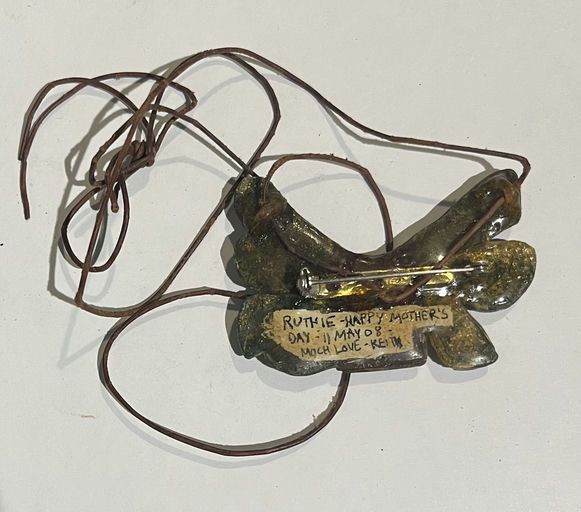 RUTHIE - HAPPY MOTHER'S
DAY - 11 MAY 08 -
MUCH LOVE - KEITH